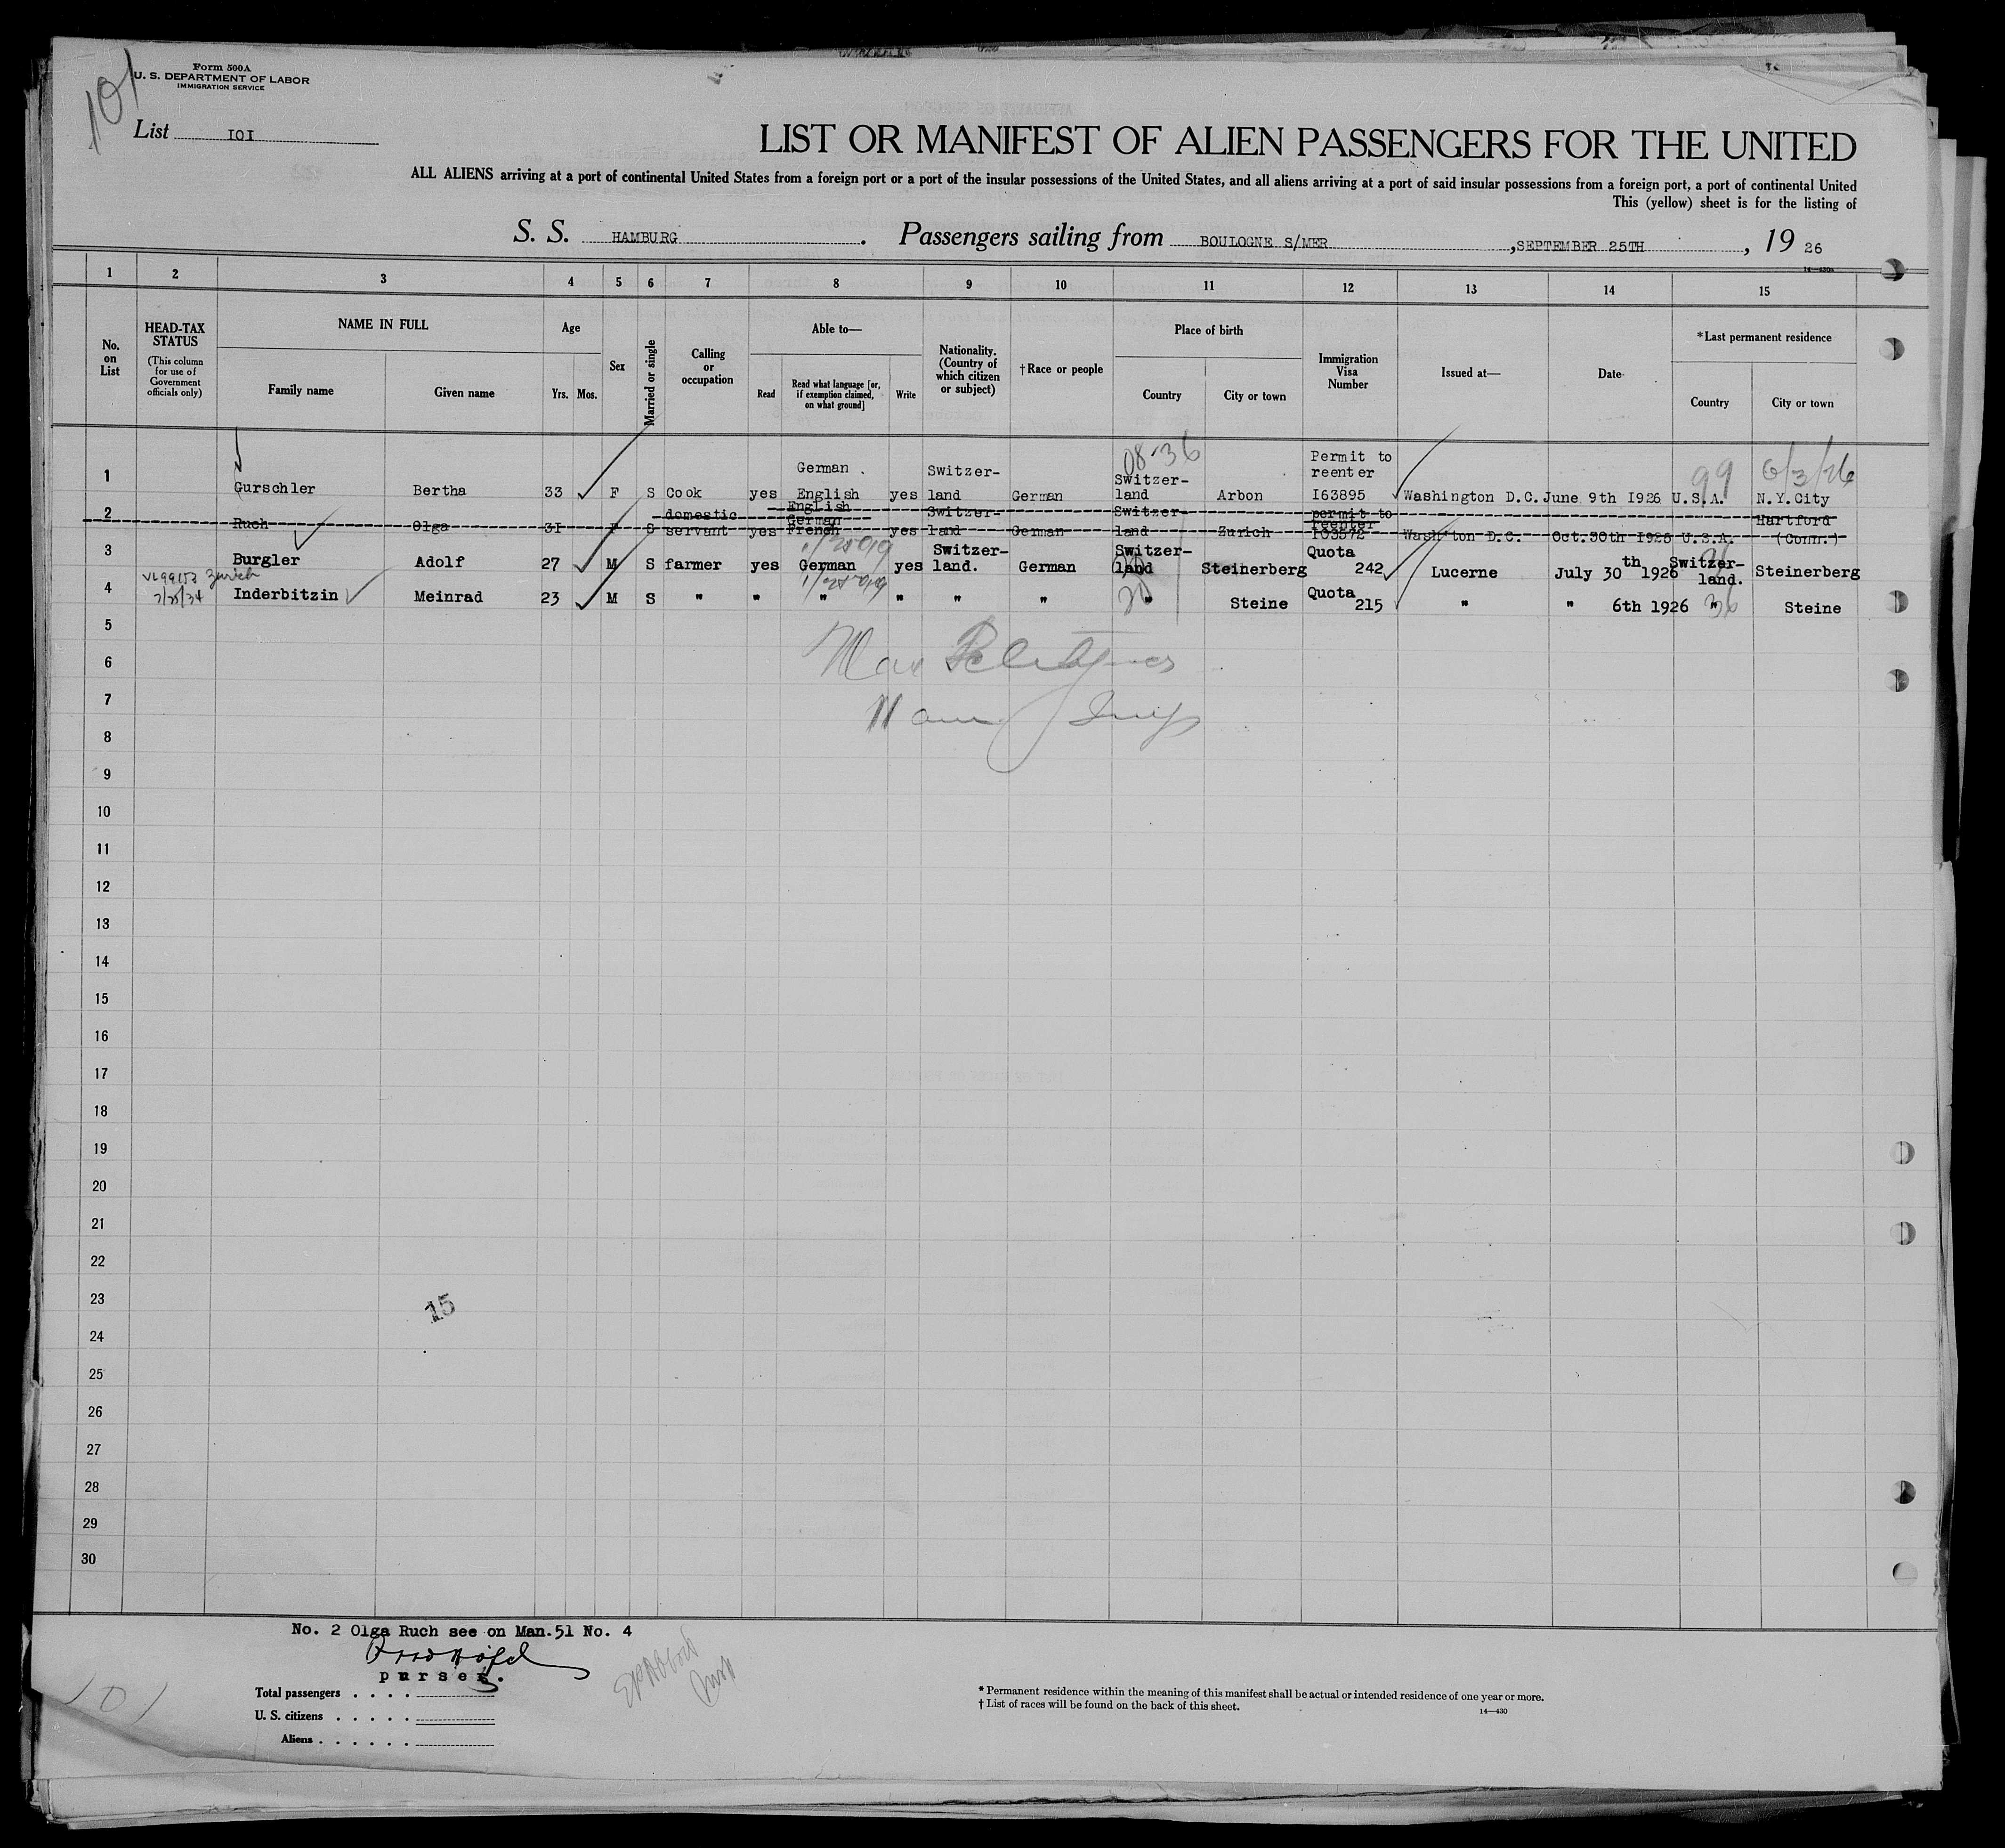 101
Form 500A
U. S. DEPARTMENT OF LABOR
IMMIGRATION SERVICE
List IOI
LIST OR MANIFEST OF ALIEN PASSENGERS FOR THE UNITED
ALL ALIENS arriving at a port of continental United States from a foreign port or a port of the insular possessions of the United States, and all aliens arriving at a port of said insular possessions from a foreign port, a port of continental United
This (yellow) sheet is for the listing of
S. S. HAMBURG. Passengers sailing from BOULOGNE S/MER, SEPTEMBER 25TH, 19 26
14—430a
1 2 3 4 5 6 7 8 9 10 11 12 13 14 15
No. on List
HEAD-TAX STATUS
(This column for use of Government officials only)
NAME IN FULL
Family name Given name
Age
Yrs. Mos.
Sex
Married or single
Calling or occupation
Able to—
Read
Read what language [or, if exemption claimed, on what ground]
Write
Nationality. (Country of which citizen or subject)
†Race or people
Place of birth
Country City or town
Immigration Visa Number
Issued at—
Date
*Last permanent residence
Country City or town
08-36
99 6/3/26
1 Gurschler Bertha 33 F S Cook yes German English yes Switzer-land German Switzer-land Arbon Permit to reenter I63895 Washington D.C. June 9th I926 U.S.A. N.Y.City
2 Ruch Olga 3I F S domestic servant yes English German French yes Switzer-land German Switzer-land Zurich permit to reenter IO3572 Washi'ton D.C. Oct.30th I925 U.S.A. Hartford (Conn.)
3 Burgler Adolf 27 M S farmer yes German yes Switzer-land. German Switzer-land Steinerberg Quota 242 Lucerne July 30th 1926 Switzer-land. Steinerberg
Zurich
4 Inderbitzin Meinrad 23 M S " " " " " " " Steine Quota 215 " " 6th 1926 " Steine
36
5
6
7
8
9
10
11
12
13
14
15
16
17
18
19
20
21
22
23
15
24
25
26
27
28
29
30
No. 2 Olga Ruch see on Man.51 No. 4
purser.
101
Total passengers . . . .
U. S. citizens . . . . .
Aliens . . . . . .
* Permanent residence within the meaning of this manifest shall be actual or intended residence of one year or more.
† List of races will be found on the back of this sheet.
14—430